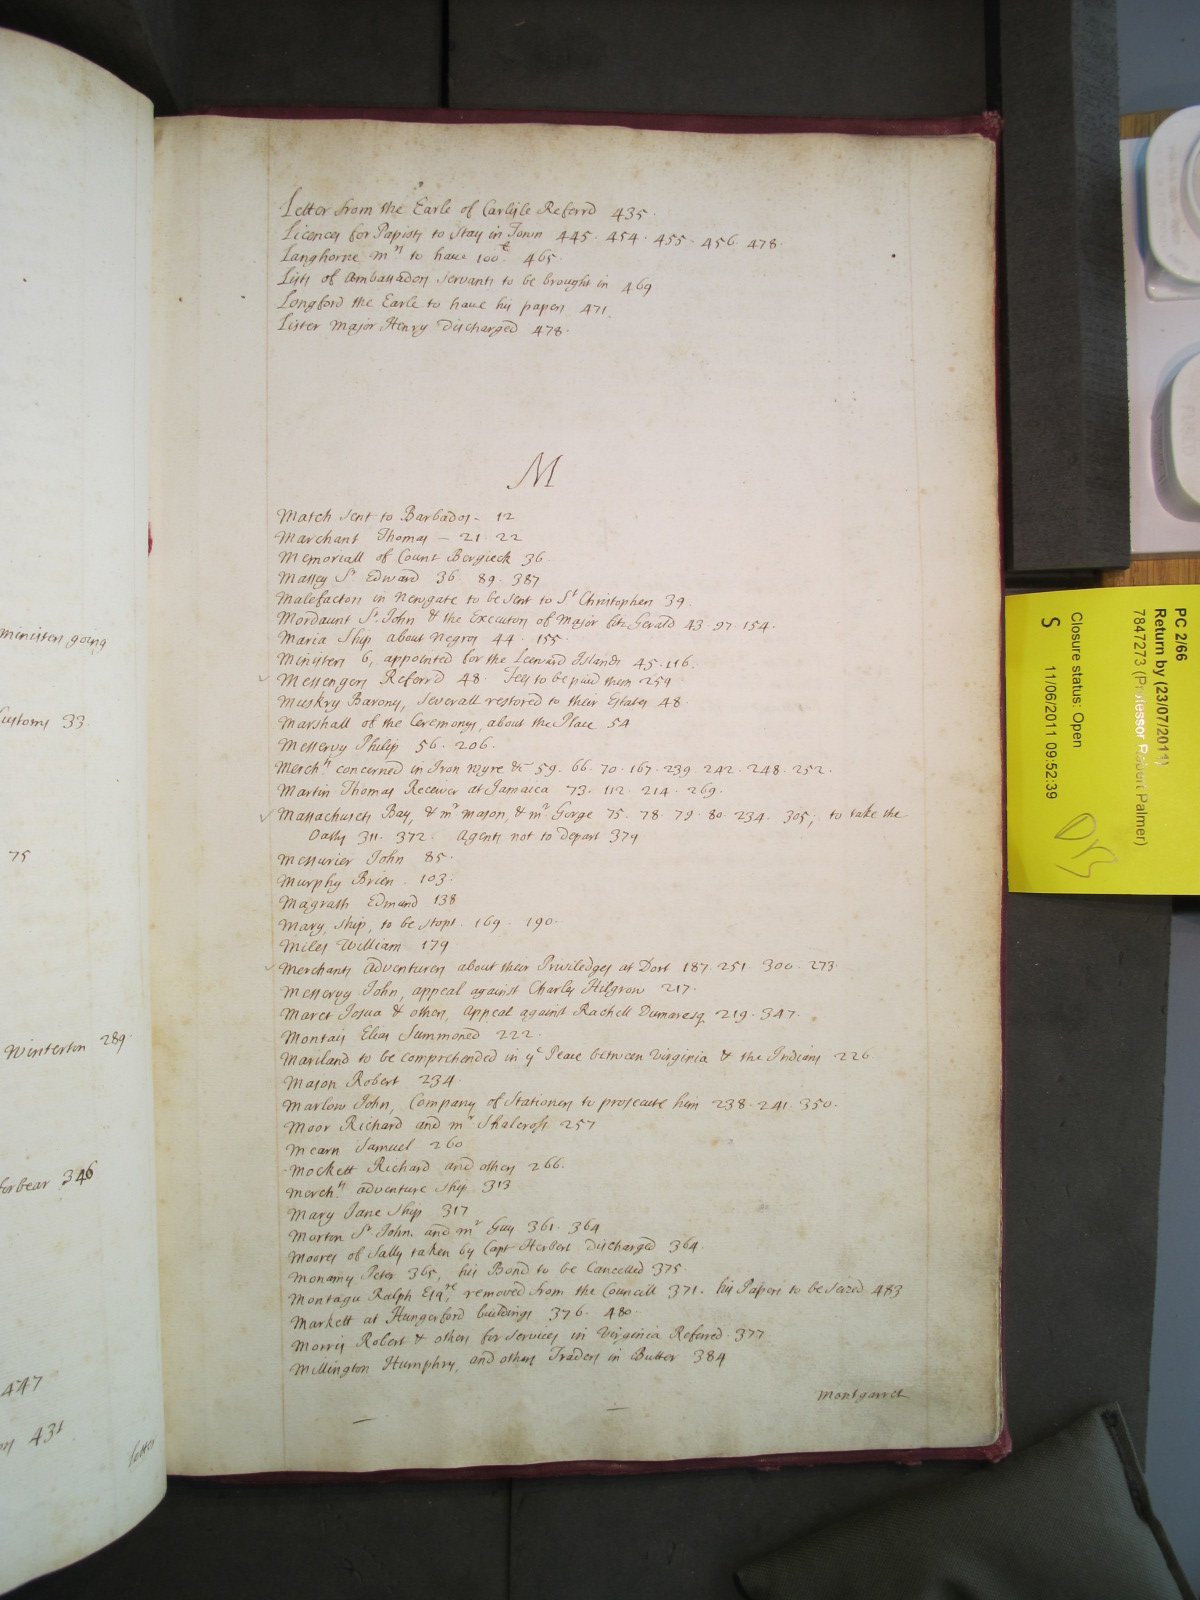 Letter from the Earle of Carlisle Referrd 435.
Licences for Papists to Stay in Town 445. 454. 455. 456. 478.
Langhorne mrs to haue 100£. 465.
Lists of Ambassadors servants to be brought in 469
Longford the Earle to haue his papers 471.
Lister Major Henry Discharged 478.
M
Match sent to Barbados - 12
Marchant Thomas - 21. 22
Memoriall of Count Bergieck 36.
Massey Sr Edward 36. 89. 387
Malefactors in Newgate to be sent to St Christophers 39.
Mordaunt Sr John & the Executors of Major fitz Gerald 43. 97. 154.
Maria Ship about Negros 44. 155.
Ministers 6, appointed for the Leeward Islands 45. 116.
Messengers Referrd 48. Fees to be paid them 259
Muskry Barony, Severall restored to their Estates 48.
Marshall of the Ceremonys, about the Place 54
Messervy Philip 56. 206.
Merchts concerned in Iron Wyre &c 59. 66. 70. 167. 239. 242. 248. 252.
Martin Thomas Receiver at Jamaica 73. 112. 214. 269.
Massachusets Bay, & mr Mason, & mr Gorge 75. 78. 79. 80. 234. 305; to take the
Oaths 311. 372. Agents not to depart 379
Messurier John 85.
Murphy Brien. 103.
Magrath Edmund 138
Mary, ship, to be stopt. 169. 190.
Miles William 179
Merchants Adventurers about their Priviledges at Dort 187. 251. 300. 273.
Messervy John, appeal against Charles Hilgrow 217.
Maret Josua & others, Appeal against Rachell Dumaresq 219. 347.
Montais Elias Summoned 222.
Mariland to be comprehended in ye Peace between Virginia & the Indians 226
Mason Robert 234.
Marlow John, Company of Stationers to prosecute him 238. 241. 350.
Moor Richard and mr Shalcross 257
Mearn Samuel 260
Mockett Richard and others 266.
Merchts adventure ship 313
Mary Jane Ship 317
Morton Sr John. and mr Guy 361. 364
Moores of Sally taken by Capt Herbert Discharged 364.
Monamy Peter 365, his Bond to be Cancelled 375.
Montagu Ralph Esqre, removed from the Councill 371. his Papers to be seized 483
Markett at Hungerford buildings 376. 480.
Morris Robert & others for services in Virginia Referred. 377
Millington Humphry, and others Traders in Butter 384
Montgarret
ministers going
Customs 33.
75
Winterton 289.
forbear 346
447
431
Letter
PC 2/66
Return by (23/07/2011)
7847273 (Professor Robert Palmer)
Closure status: Open
S 11/06/2011 09:52:39